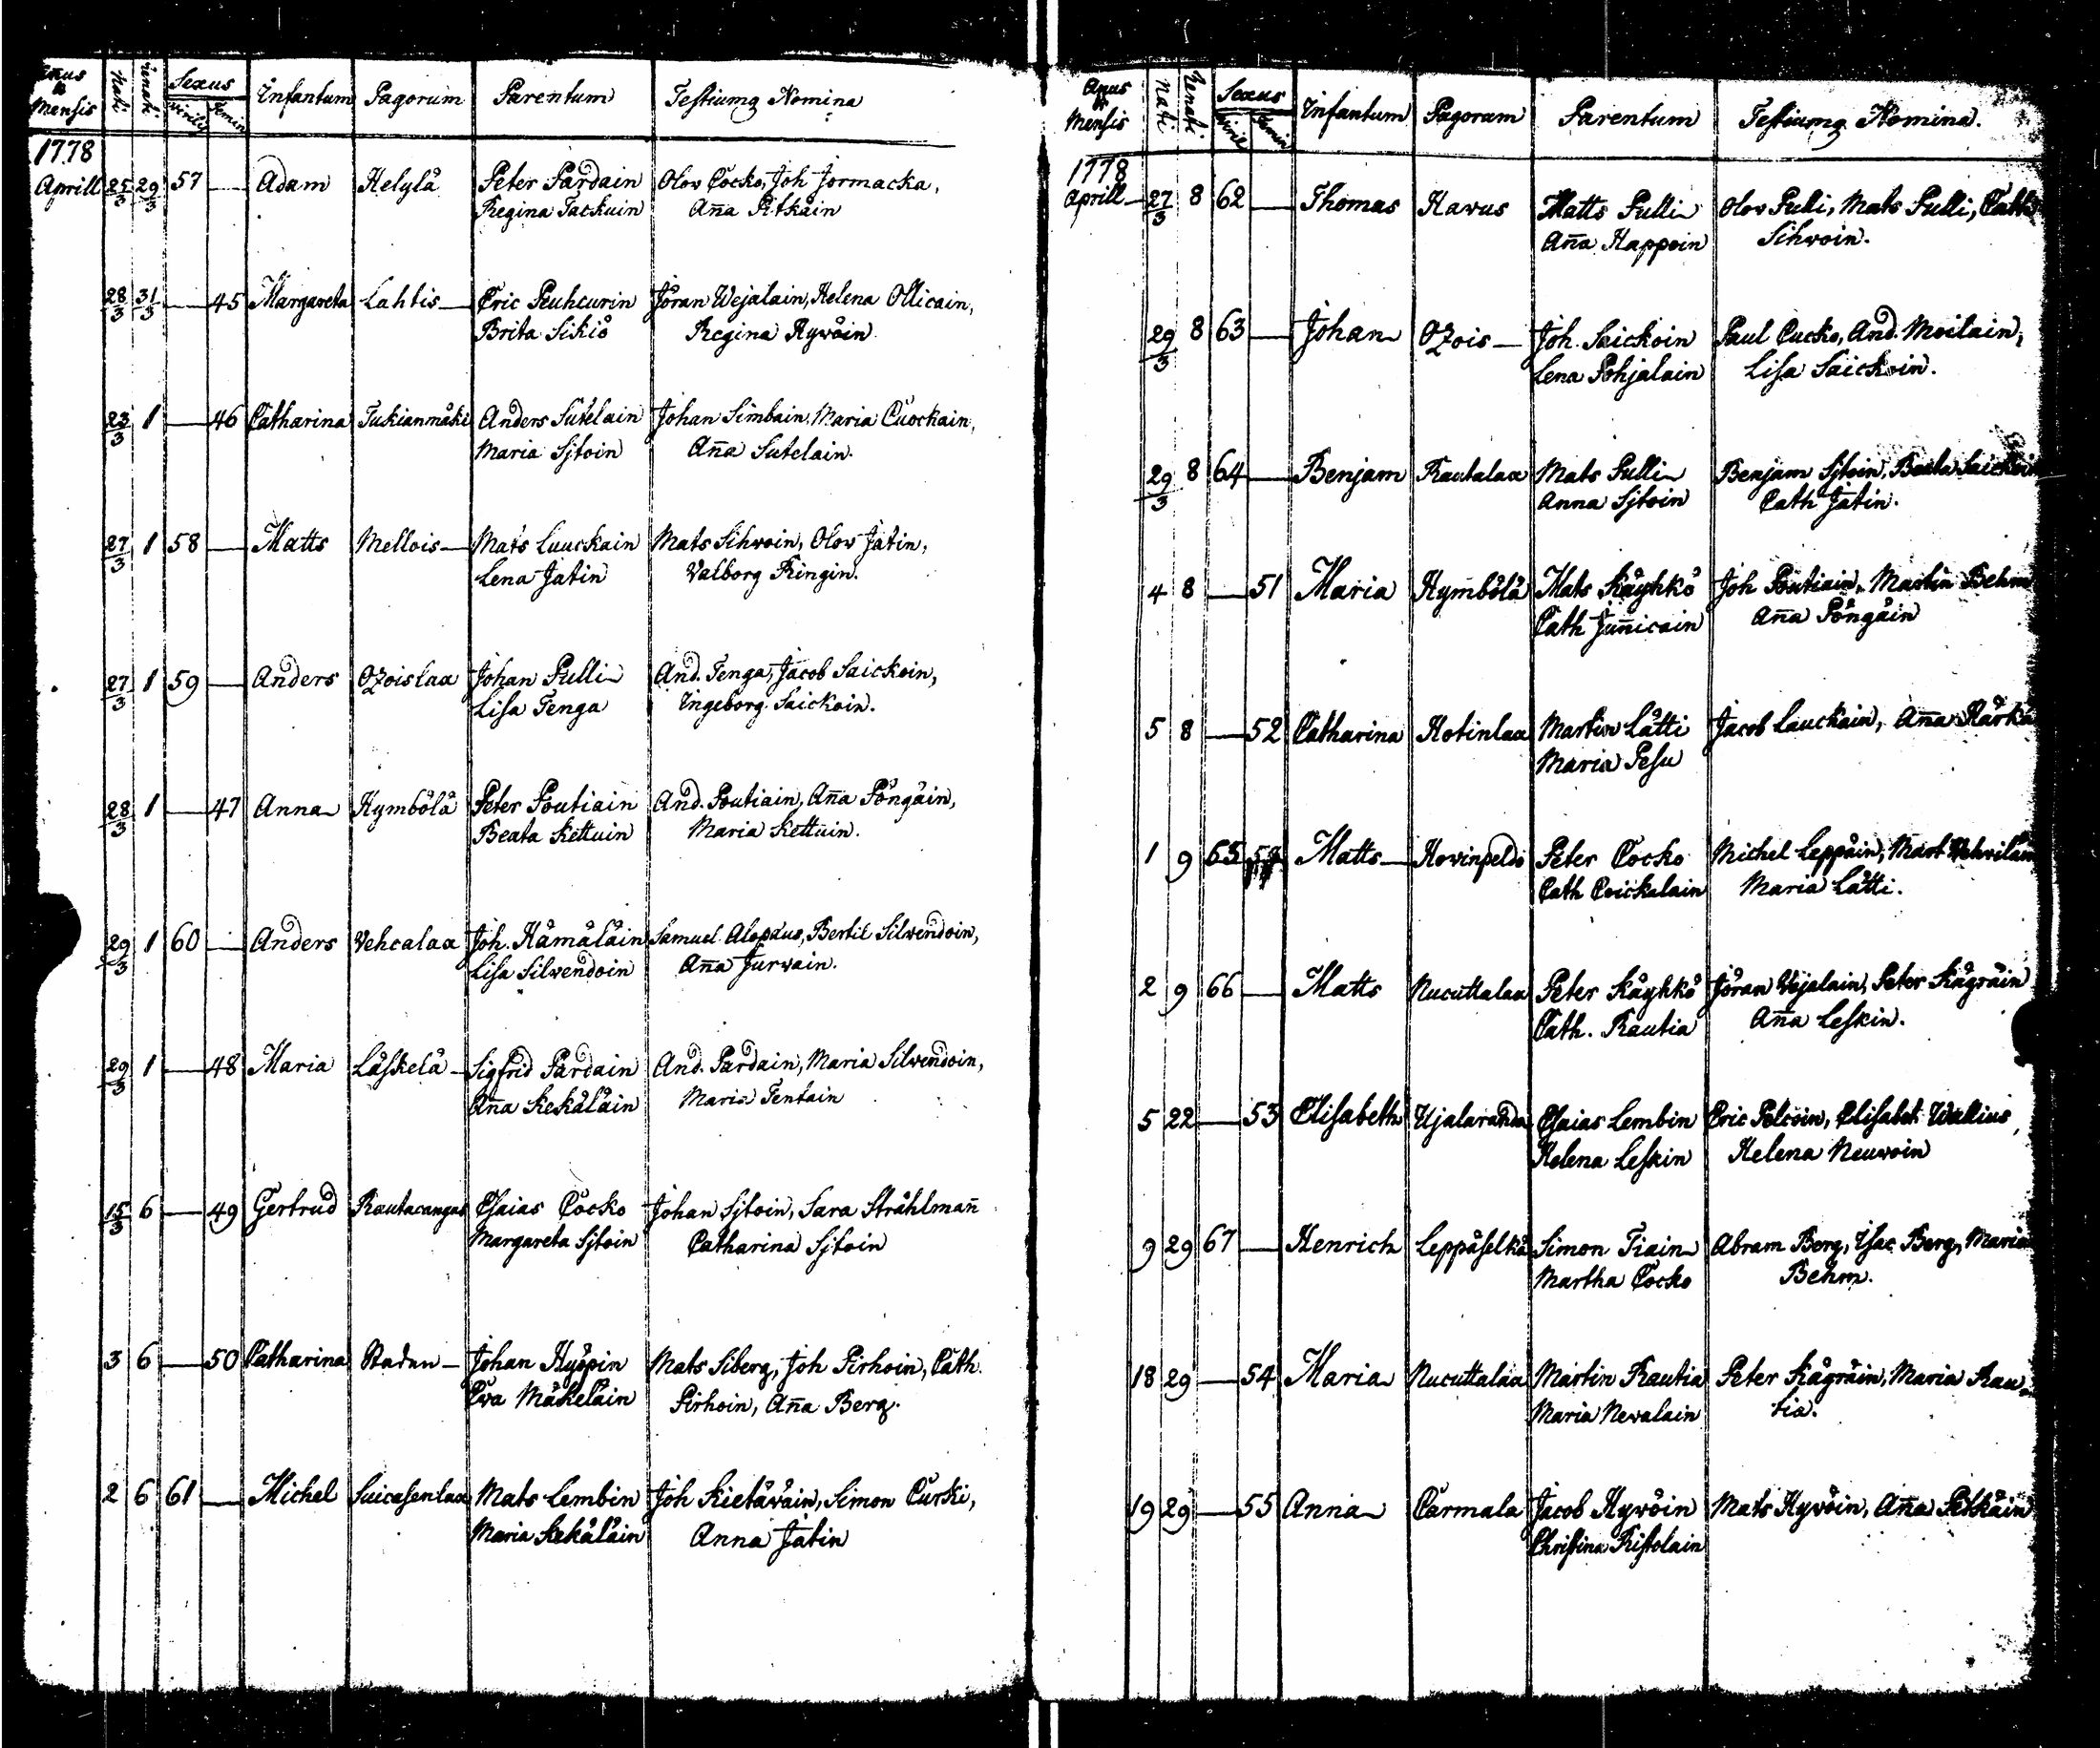 Añus & Mensis Nati Renati Sexus Virilis Femin Infantum Pagorum Parentum Testiumq Nomina
1778
Aprill 25/3 29/3 57 — Adam Helylä Peter Pardain Olov Cocko, Joh Jormacka,
Regina Tackuin Aña Pitkäin
28/3 31/3 — 45 Margareta Lahtis Eric Peuhcurin Jöran Wejalain, Helena Ollicain,
Brita Sikiö Regina Hywöin
23/3 1 — 46 Catharina Tukianmäki Anders Sutelain Johan Simbain, Maria Cuockain,
Maria Sjtoin Aña Sutelain.
27/3 1 58 — Matts Mellois Mats Luuckain Mats Sihvoin, Olov Jätin,
Lena Jätin Valborg Ringin.
27/3 1 59 — Anders Ozoislax Johan Pulli And. Tenga, Jacob Saickoin,
Lisa Tenga Ingeborg Saickoin.
28/3 1 — 47 Anna Hymbölä Peter Poutiain And. Poutiain, Aña Pöngäin,
Beata Kettuin Maria Kettuin.
29/3 1 60 — Anders Vehcalax Joh. Hämäläin Samuel Alopæus, Bertil Silvendoin,
Lisa Silvendoin Aña Jurvain.
29/3 1 — 48 Maria Läskelä Sigfrid Pardain And. Pardain, Maria Silvendoin,
Aña Kekäläin Maria Tentain
15/3 6 — 49 Gertrud Rautacangas Esaias Cocko Johan Sjtoin, Sara Stråhlmañ
Margareta Sjtoin Catharina Sjtoin
3 6 — 50 Catharina Staden Johan Hyöpin Mats Siberg, Joh Pirhoin, Cath.
Eva Mäkeläin Pirhoin, Aña Berg.
2 6 61 — Michel Suicasenlax Mats Lembin Joh Kietäväin, Simon Curki,
Maria Kekäläin Anna Jätin
Añus & Mensis Nati Renati Sexus Viril Femin Infantum Pagorum Parentum Testiumq Nomina.
1778
Aprill 27/3 8 62 — Thomas Havus Matts Pulli Olov Pulli, Mats Pulli, Cath
Aña Happoin Sihvoin.
29/3 8 63 — Johan Ozois Joh. Saickoin Paul Cucko, And. Moilain,
Lena Pohjalain Lisa Saickoin.
29/3 8 64 — Benjam Rautalax Mats Pulli Benjam Sjtoin, Beata Saickoin
Anna Sjtoin Cath Jätin.
4 8 — 51 Maria Hymbölä Mats Käyhkö Joh Poutiain, Martin Behm
Cath Juñicain Aña Pöngäin
5 8 — 52 Catharina Hotinlax Martin Lätti Jacob Lauckain, Aña Kärkä
Maria Pesu
1 9 65 Matts Hovinpeldo Peter Cocko Michel Leppäin, Mart Vehviläin
Cath Coickalain Maria Lätti.
2 9 66 — Matts Nucuttalax Peter Käyhkö Jöran Wejalain, Peter Kägräin
Cath. Rautia Aña Leskin.
5 22 — 53 Elisabeth Ujalaranda Esaias Lembin Eric Pelcoin, Elisabet Wallius,
Helena Leskin Helena Neuvoin
9 29 67 — Henrich Leppäselkä Simon Tiain Abram Berg, Isac Berg, Maria
Martha Cocko Behm.
18 29 — 54 Maria Nucuttalax Martin Rautia Peter Kägräin, Maria Rau-
Maria Nevalain tia.
19 29 — 55 Anna Carmala Jacob Hywöin Mats Hyvöin, Aña Pitkäin
Christina Ristolain